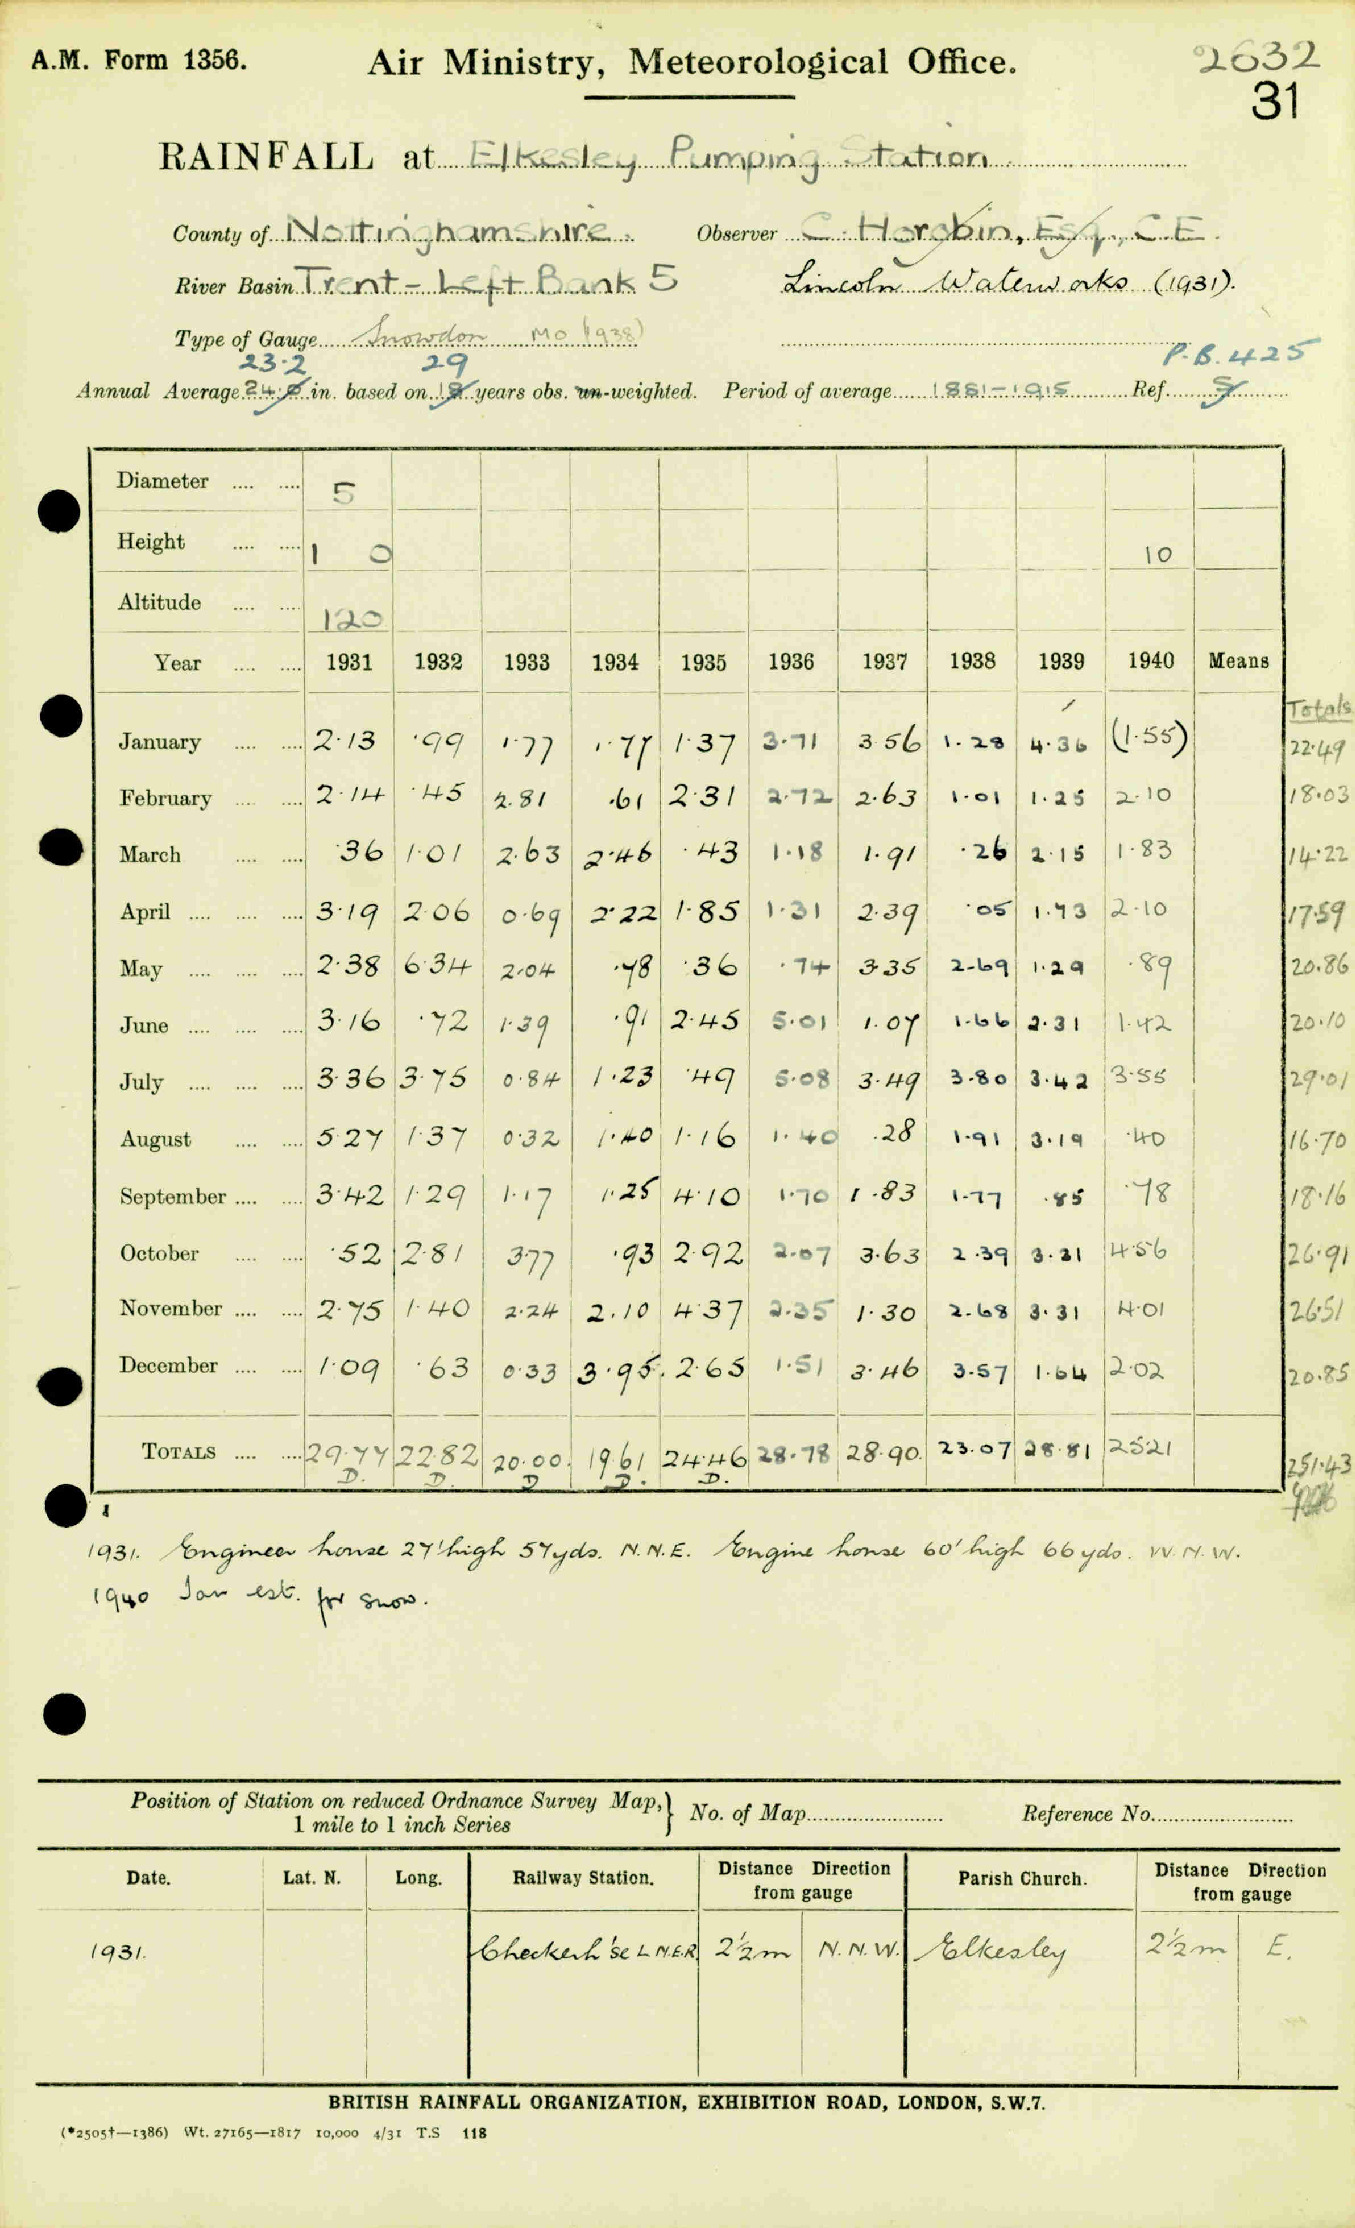 A.M. Form 1356. Air Ministry, Meteorological Office. 2632
31
RAINFALL at Elkesley Pumping Station
County of Nottinghamshire. Observer C. Horobin, Esq., C.E.
River Basin Trent - Left Bank 5 Lincoln Waterworks (1931).
Type of Gauge Snowdon MO (1938)
23.2 29 P.B. 425
Annual Average 24.0 in. based on 18 years obs. un-weighted. Period of average 1881-1915 Ref. 5
Diameter 5
Height 1 0 10
Altitude 120
Year 1931 1932 1933 1934 1935 1936 1937 1938 1939 1940 Means
Totals
January 2.13 .99 1.77 1.77 1.37 3.71 3.56 1.28 4.36 (1.55) 22.49
February 2.14 .45 2.81 .61 2.31 2.72 2.63 1.01 1.25 2.10 18.03
March .36 1.01 2.63 2.46 .43 1.18 1.91 .26 2.15 1.83 14.22
April 3.19 2.06 0.69 2.22 1.85 1.31 2.39 .05 1.73 2.10 17.59
May 2.38 6.34 2.04 .78 .36 .74 3.35 2.69 1.29 .89 20.86
June 3.16 .72 1.39 .91 2.45 5.01 1.07 1.66 2.31 1.42 20.10
July 3.36 3.75 0.84 1.23 .49 5.08 3.49 3.80 3.42 3.55 29.01
August 5.27 1.37 0.32 1.40 1.16 1.40 .28 1.91 3.19 .40 16.70
September 3.42 1.29 1.17 1.25 4.10 1.70 1.83 1.77 .85 .78 18.16
October .52 2.81 3.77 .93 2.92 2.07 3.63 2.39 3.31 4.56 26.91
November 2.75 1.40 2.24 2.10 4.37 2.35 1.30 2.68 3.31 4.01 26.51
December 1.09 .63 0.33 3.95 2.65 1.51 3.46 3.57 1.64 2.02 20.85
TOTALS 29.77 22.82 20.00 19.61 24.46 28.78 28.90 23.07 28.81 25.21 251.43
D. D. D D. D.
1931. Engineer house 27' high 57 yds. N.N.E. Engine house 60' high 66 yds. W.N.W.
1940 Jan est. for snow.
Position of Station on reduced Ordnance Survey Map,} No. of Map Reference No.
1 mile to 1 inch Series
Date. Lat. N. Long. Railway Station. Distance Direction from gauge Parish Church. Distance Direction from gauge
1931. Checkerh'se L.N.E.R. 2½m N.N.W. Elkesley 2½m E.
BRITISH RAINFALL ORGANIZATION, EXHIBITION ROAD, LONDON, S.W.7.
(*2505†—1386) Wt. 27165—1817 10,000 4/31 T.S 118